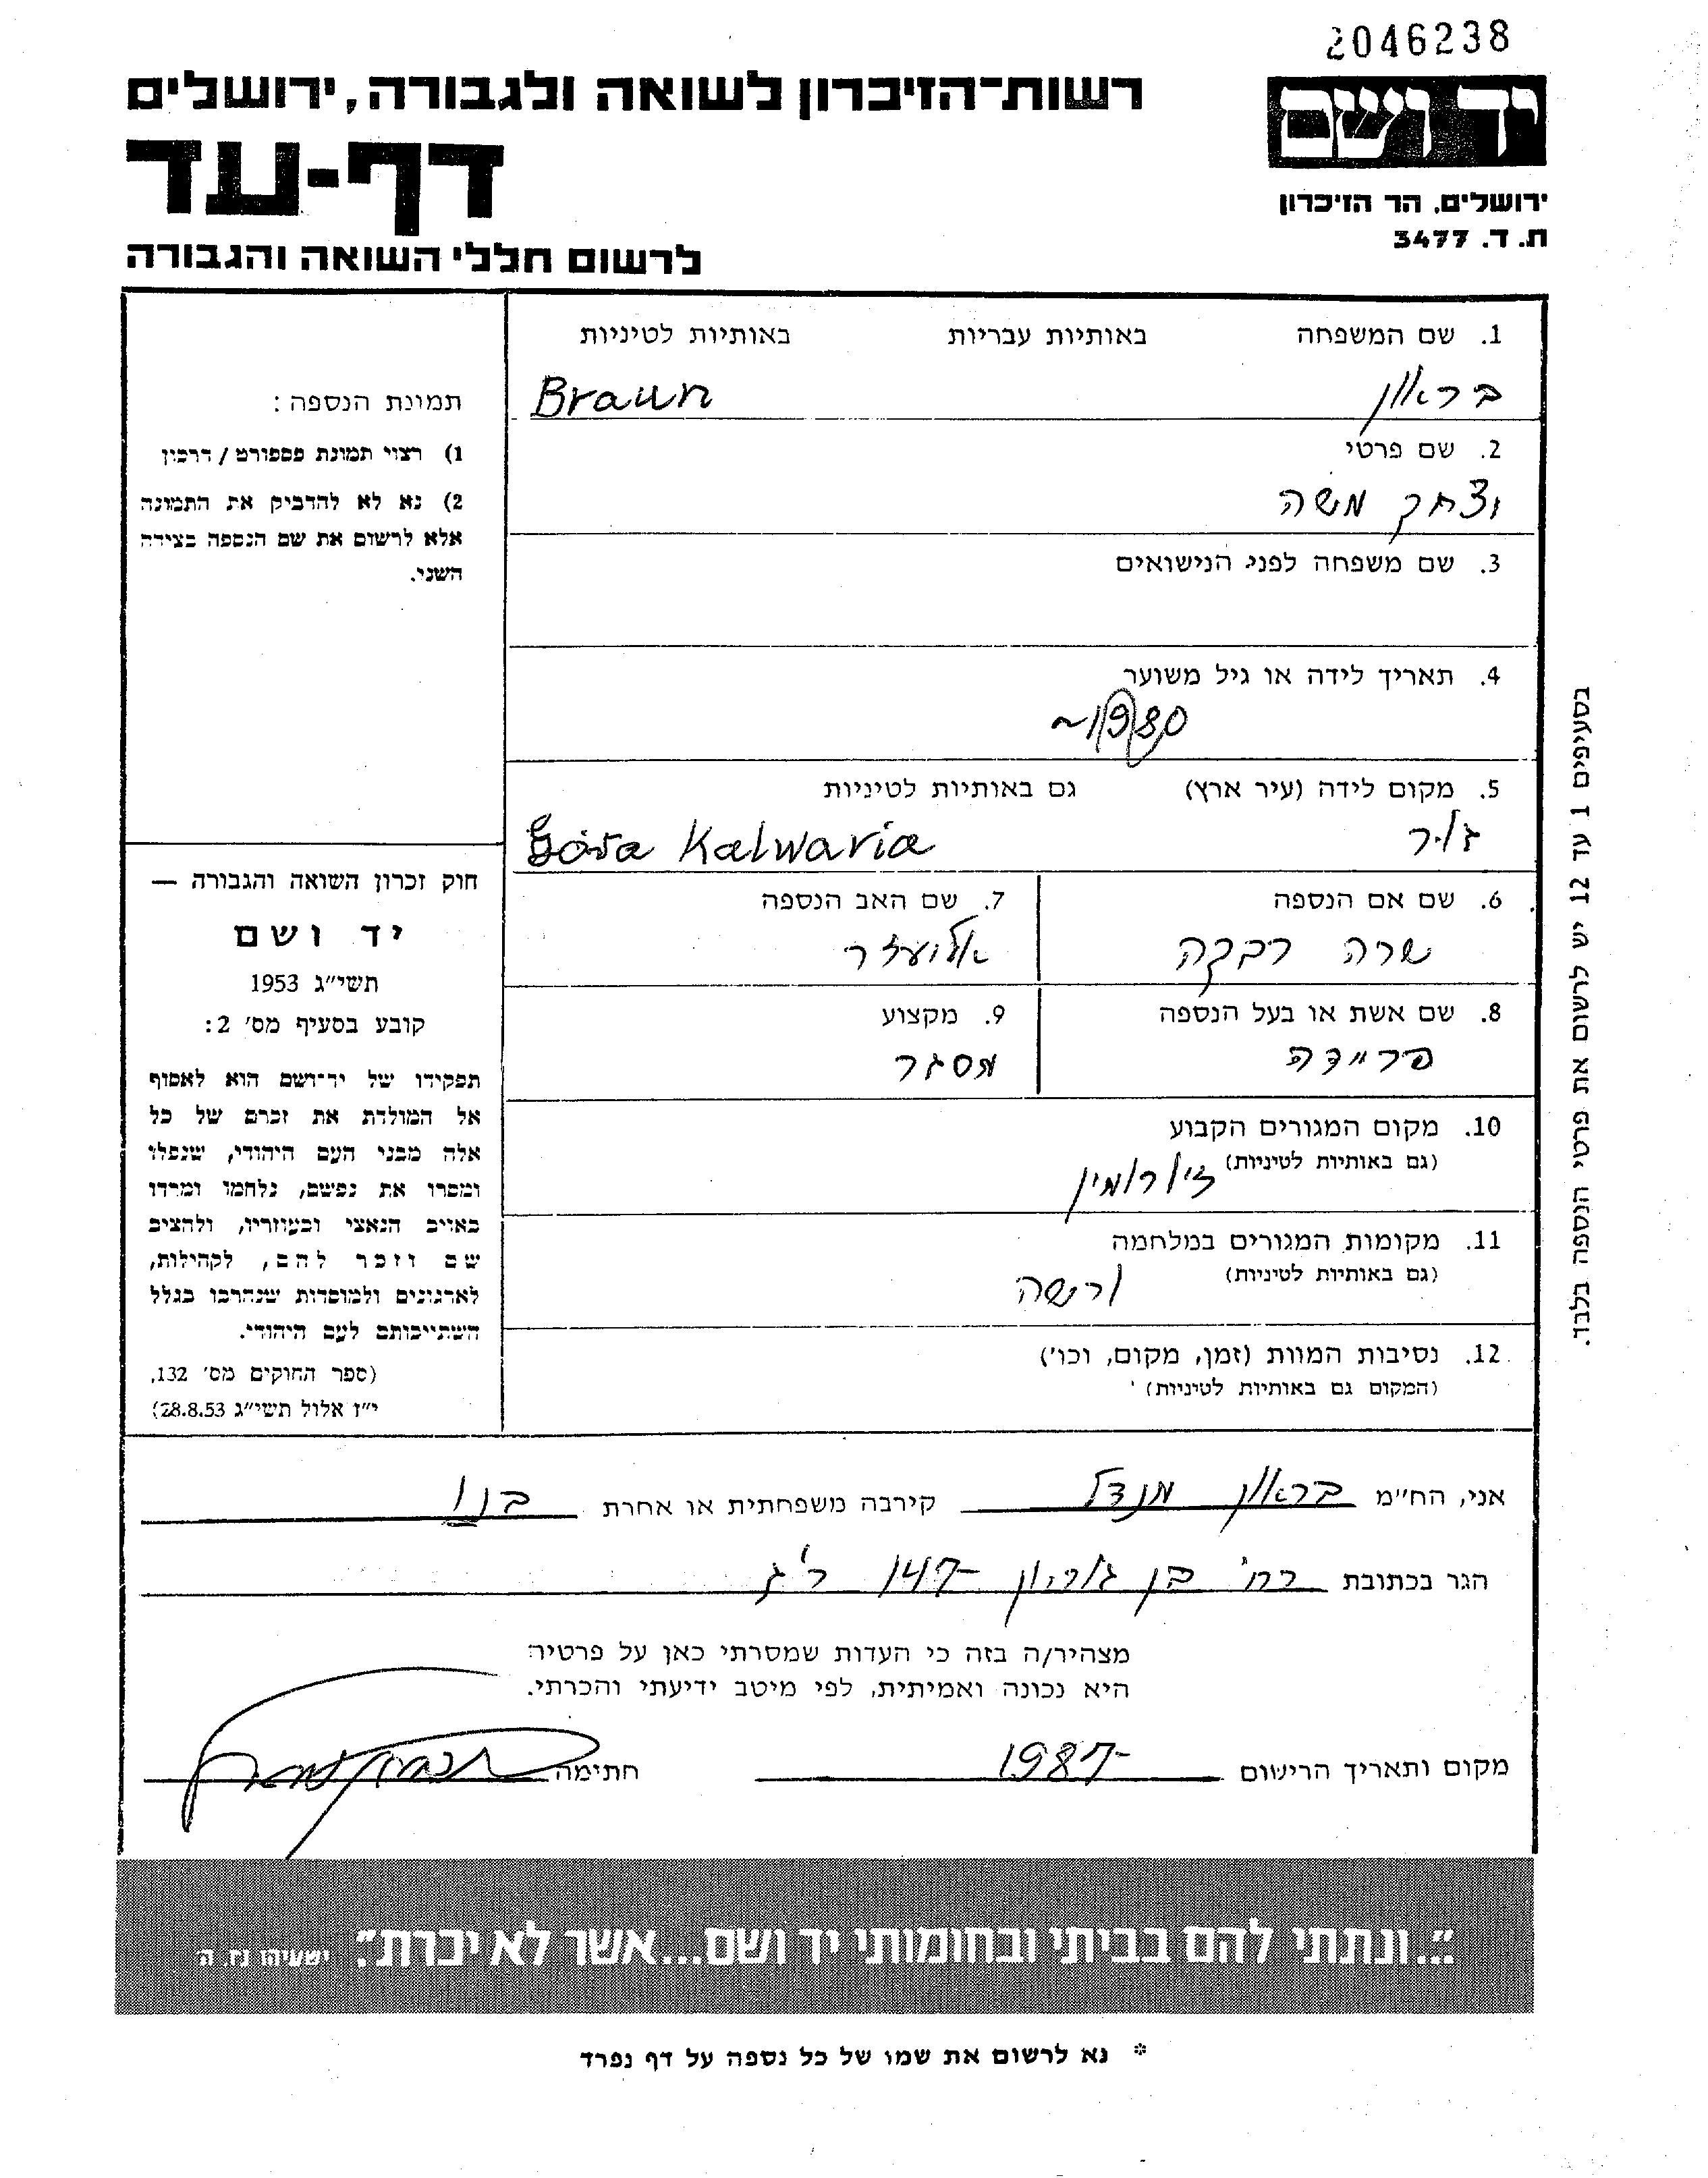 2046238
רשות-הזיכרון לשואה ולגבורה, ירושלים
יד ושם
דף-עד
ירושלים, הר הזיכרון
ת. ד. 3477
לרשום חללי השואה והגבורה
1. שם המשפחה באותיות עבריות באותיות לטיניות
בראון Braun
2. שם פרטי
יצחק משה
3. שם משפחה לפני הנישואים
4. תאריך לידה או גיל משוער
~1980
5. מקום לידה (עיר ארץ) גם באותיות לטיניות
Kalwaria
6. שם אם הנספה 7. שם האב הנספה
שרה רבקה אליעזר
8. שם אשת או בעל הנספה 9. מקצוע
פריידה מסגר
10. מקום המגורים הקבוע
(גם באותיות לטיניות)
11. מקומות המגורים במלחמה
(גם באותיות לטיניות) ורשה
12. נסיבות המוות (זמן, מקום, וכו')
(המקום גם באותיות לטיניות)
תמונת הנספה:
1) רצוי תמונת פספורט / דרכון
2) נא לא להדביק את התמונה
אלא לרשום את שם הנספה בצידה
השני.
חוק זכרון השואה והגבורה —
יד ושם
תשי"ג 1953
קובע בסעיף מס' 2:
תפקידו של יד-ושם הוא לאסוף
אל המולדת את זכרם של כל
אלה מבני העם היהודי, שנפלו
ומסרו את נפשם, נלחמו ומרדו
באויב הנאצי ובעוזריו, ולהציב
שם וזכר להם, לקהילות,
לארגונים ולמוסדות שנהרבו בגלל
השתייכותם לעם היהודי.
(ספר החוקים מס' 132,
י"ז אלול תשי"ג 28.8.53)
בסעיפים 1 עד 12 יש לרשום את פרטי הנספה בלבד.
אני, הח"מ בראון מנדל קירבה משפחתית או אחרת בנו
הגר בכתובת רח' בן גוריון 147 ר"ג
מצהיר/ה בזה כי העדות שמסרתי כאן על פרטיה
היא נכונה ואמיתית, לפי מיטב ידיעתי והכרתי.
מקום ותאריך הרישום 1987 חתימה
"...ונתתי להם בביתי ובחומותי יד ושם...אשר לא יכרת". ישעיהו נו, ה
* נא לרשום את שמו של כל נספה על דף נפרד